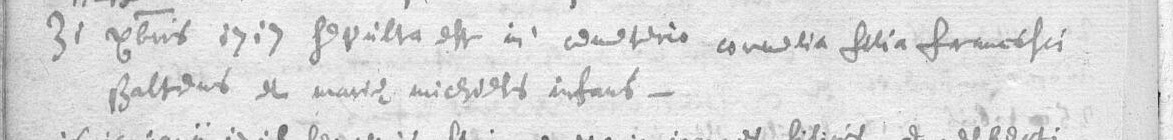 31 xbris 1717 sepulta est in cemeterio cornelia filia francisci
baltens et mariæ michiels infans —